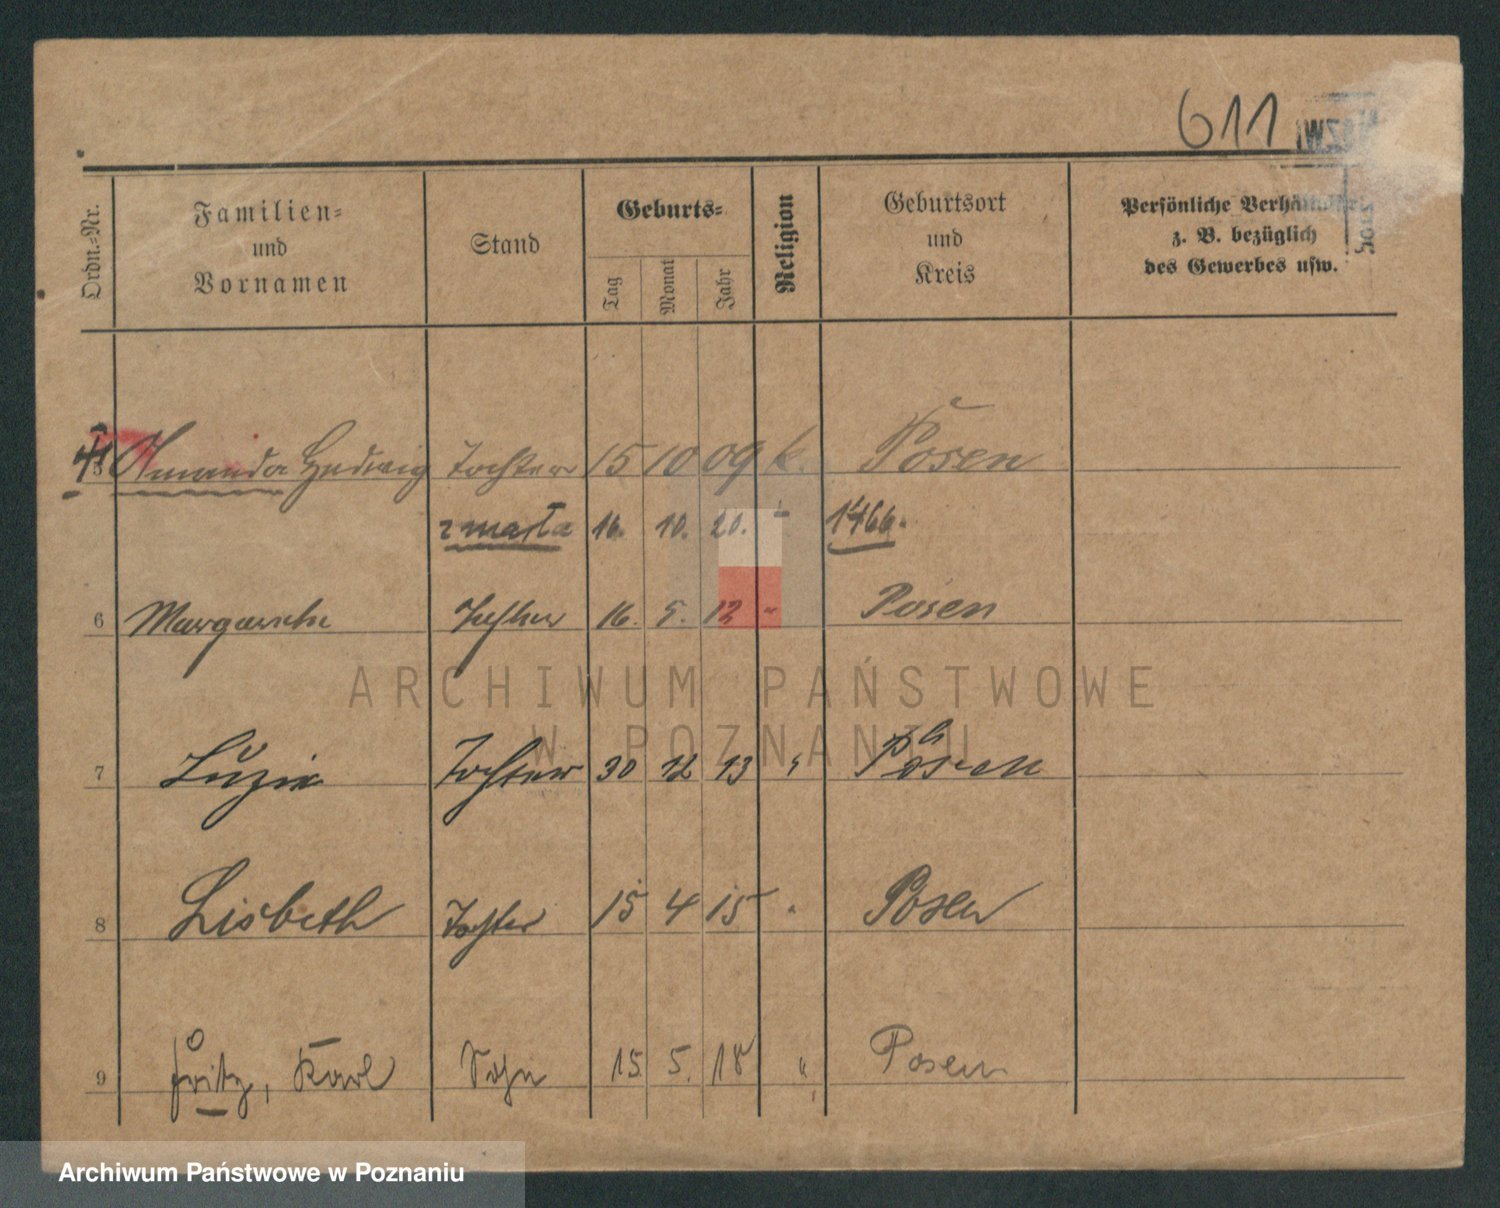 611
Ordn.-Nr.
Familien-
und
Vornamen
Stand
Geburts-
Tag
Monat
Jahr
Religion
Geburtsort
und
Kreis
Persönliche Verhältnisse
z. B. bezüglich
des Gewerbes usw.
Amanda Hedwig Tochter 15 10 09 k. Posen
zmarła 16. 10. 20. 1466.
6 Margarethe Tochter 16. 5. 12 " Posen
7 Luzie Tochter 30 12 13 " Posen
8 Lisbeth Tochter 15 4 15 " Posen
9 Fritz, Karl Sohn 15. 5. 18 " Posen
ARCHIWUM PAŃSTWOWE
W POZNANIU
Archiwum Państwowe w Poznaniu